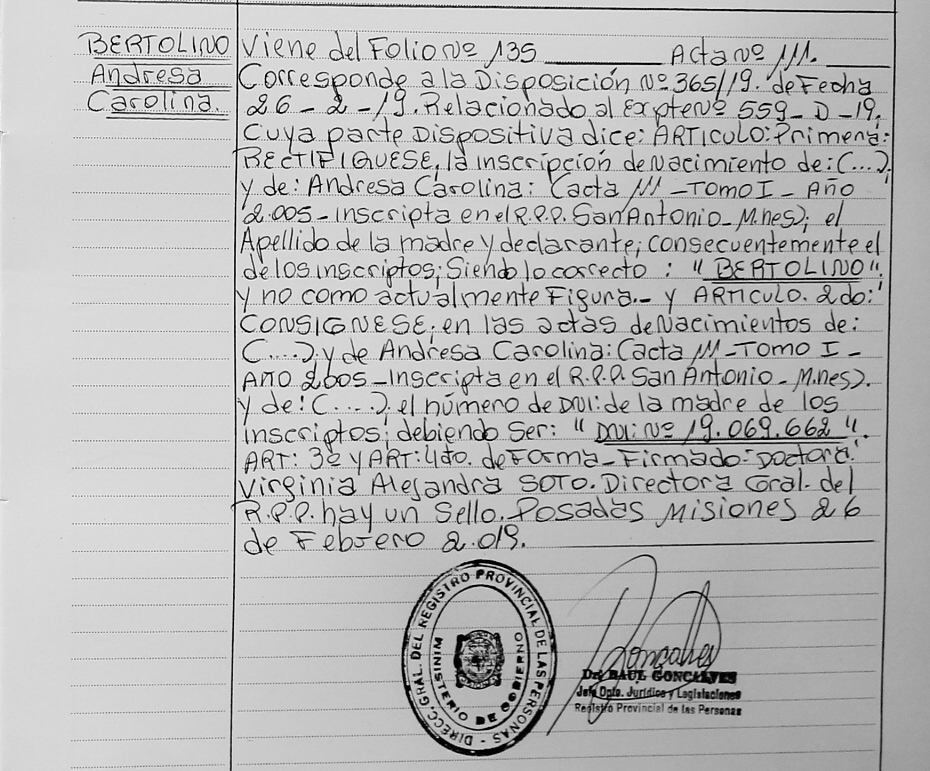 BERTOLINO
Andresa
Carolina.
Viene del Folio Nº 135 Acta Nº 111.
Corresponde a la Disposición Nº 365/19. de Fecha
26-2-19. Relacionado al Expte Nº 559-D-19,
Cuya parte Dispositiva dice: ARTICULO: Primera:
RECTIFIQUESE, la inscripción de Nacimiento de: (...),
y de: Andresa Carolina: (acta 111-TOMO I-Año
2.005-Inscripta en el R.P.P. San Antonio-M.nes); el
Apellido de la madre y declarante; consecuentemente el
de los inscriptos; Siendo lo correcto: "BERTOLINO".
y no como actualmente Figura.- y ARTICULO. 2do:
CONSIGNESE; en las actas de Nacimientos de:
(....), y de Andresa Carolina: (acta 111-Tomo I-
Año 2005-Inscripta en el R.P.P. San Antonio-M.nes).
y de: (....). el número de DNI: de la madre de los
inscriptos; debiendo Ser: "DNI: Nº 19.069.662".
ART: 3º y ART: 4to. de Forma-Firmado: Doctora:
Virginia Alejandra SOTO. Directora Gral. del
R.P.P. hay un Sello. Posadas Misiones 26
de Febrero 2.019.
DIRECC. GRAL. DEL REGISTRO PROVINCIAL DE LAS PERSONAS -
MINISTERIO DE GOBIERNO
Dr. RAUL GONCALVES
Jefe Dpto. Jurídico y Legislaciones
Registro Provincial de las Personas